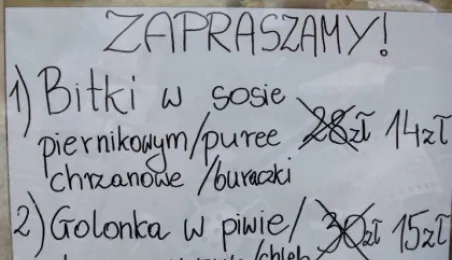 ZAPRASZAMY!
1) Bitki w sosie
piernikowym/puree 28zł 14zł
chrzanowe /buraczki
2) Golonka w piwie/ 30zł 15zł
/chleb